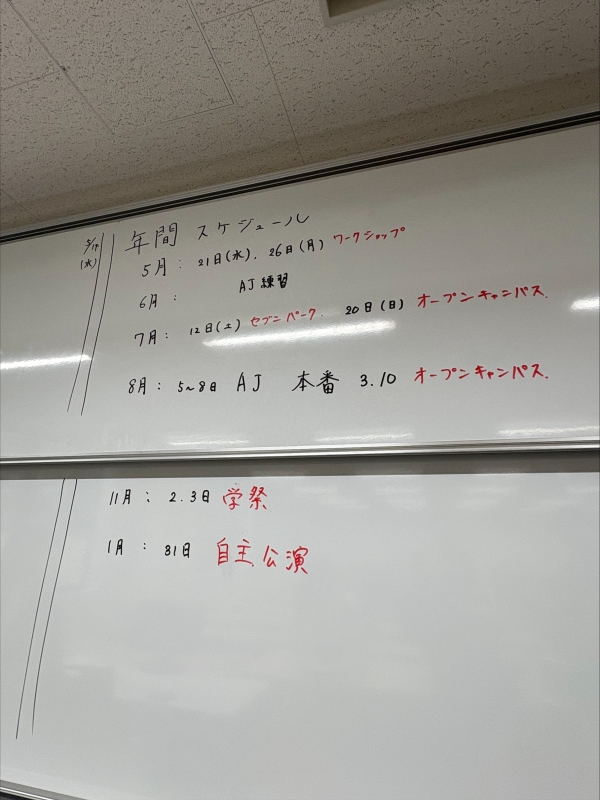 5/14
(水)
年間 スケジュール
5月： 21日(水), 26日(月) ワークショップ
6月： AJ 練習
7月： 12日(土) セブンパーク. 20日(日) オープンキャンパス.
8月： 5~8日 AJ 本番 3.10 オープンキャンパス.
11月： 2.3日 学祭
1月： 31日 自主公演